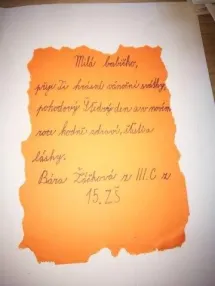 Milá babičko,
přeji Ti krásné vánoční svátky,
pohodový Štědrý den a v novém
roce hodně zdraví, štěstí a
lásky.
Bára Žáčková z III. C z
15. ZŠ